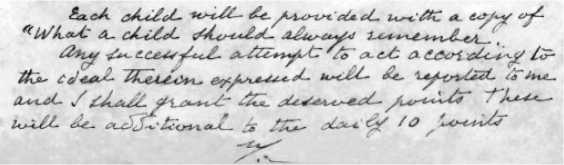 Each child will be provided with a copy of
"What a child should always remember".
Any successful attempt to act according to
the ideal therein expressed will be reported to me
and I shall grant the deserved points These
will be additional to the daily 10 points